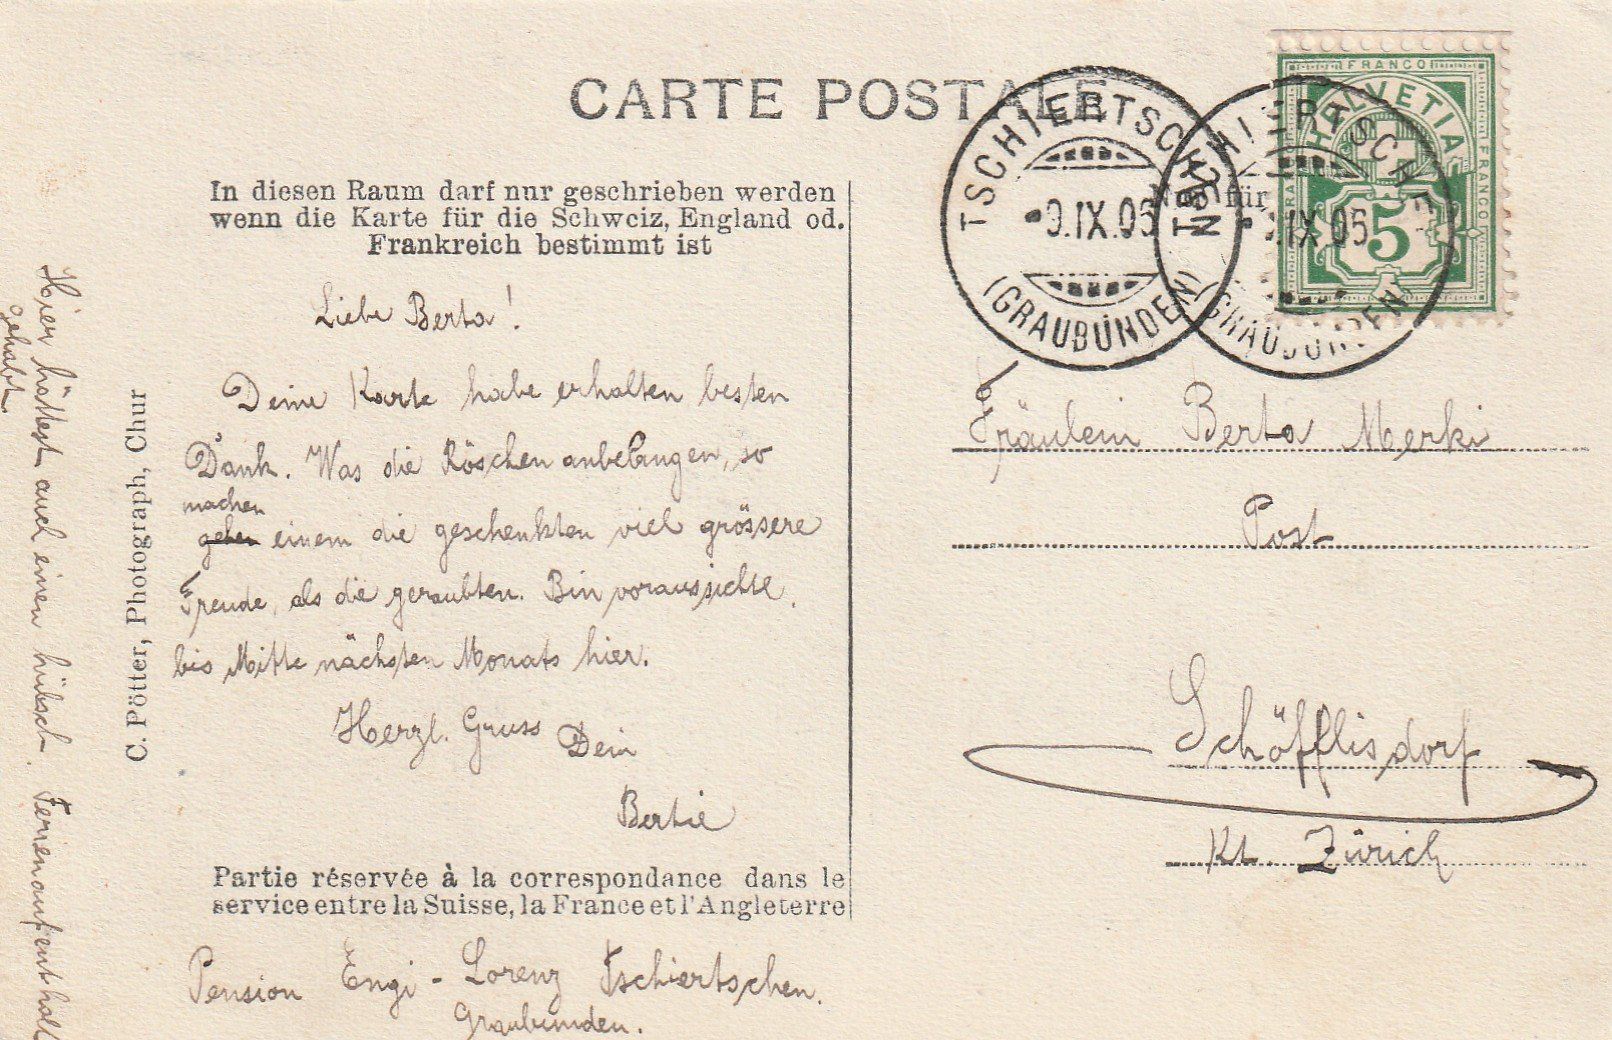 CARTE POSTALE
In diesen Raum darf nur geschrieben werden
wenn die Karte für die Schweiz, England od.
Frankreich bestimmt ist
Liebe Berta!
Deine Karte habe erhalten besten
Dank. Was die Röschen anbelangen, so
machen
gehen einem die geschenkten viel grössere
Freude, als die geraubten. Bin voraussichtl.
bis Mitte nächsten Monats hier.
Herzl. Gruss Dein
Bertie
Partie réservée à la correspondance dans le
service entre la Suisse, la France et l'Angleterre
Pension Engi-Lorenz Tschiertschen.
Graubünden.
Hier hättest auch einen hübsch. Ferienaufenthalt
gehabt.
C. Pötter, Photograph, Chur
TSCHIERTSCHEN
9.IX.05
(GRAUBÜNDEN)
TSCHIERTSCHEN
IX 05
(GRAUBÜNDEN)
Nur für
FRANCO
HELVETIA
FRANCO
FRANCO
5
Fräulein Berta Merki
Post
Schöfflisdorf
Kt. Zürich